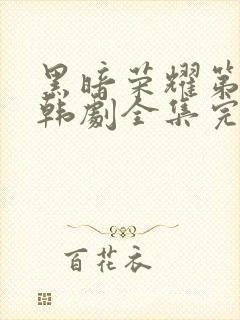 黑暗荣耀第
韩剧全集完
百花衣